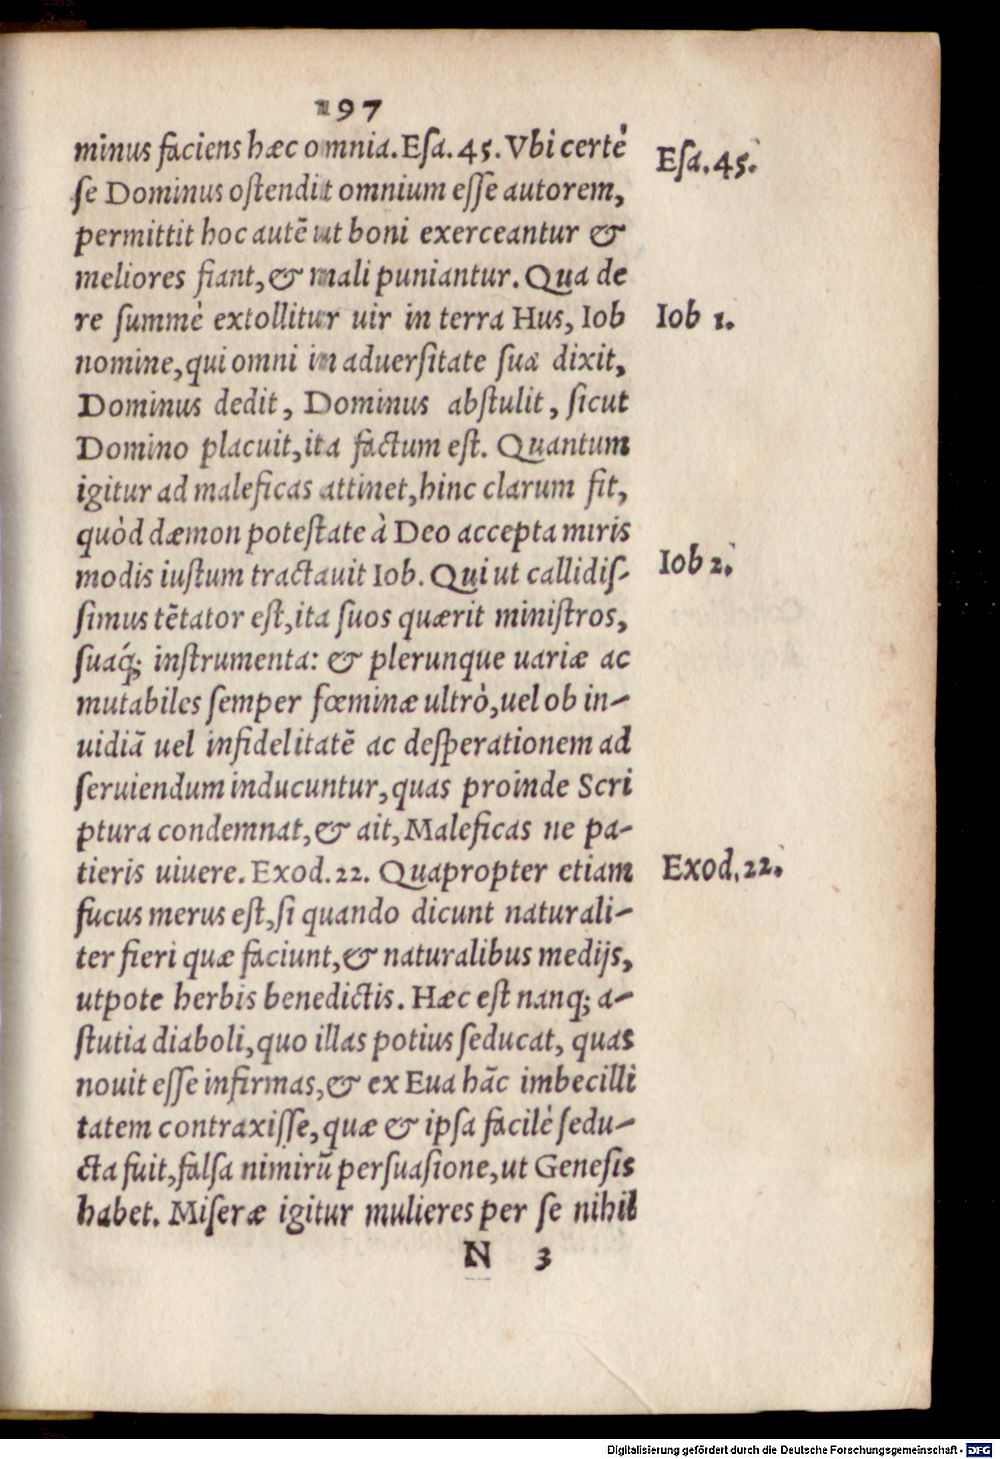 197
minus faciens hæc omnia. Eſa. 45. Vbi certè
ſe Dominus oſtendit omnium eſſe autorem,
permittit hoc autē ut boni exerceantur &
meliores fiant, & mali puniantur. Qua de
re ſummè extollitur uir in terra Hus, Iob
nomine, qui omni in aduerſitate ſua dixit,
Dominus dedit, Dominus abſtulit, ſicut
Domino placuit, ita factum eſt. Quantum
igitur ad maleficas attinet, hinc clarum fit,
quòd dæmon poteſtate à Deo accepta miris
modis iuſtum tractauit Iob. Qui ut callidiſ-
ſimus tētator eſt, ita ſuos quærit miniſtros,
ſuaq́; inſtrumenta: & plerunque uariæ ac
mutabiles ſemper fœminæ ultrò, uel ob in-
uidiā uel infidelitatē ac deſperationem ad
ſeruiendum inducuntur, quas proinde Scri
ptura condemnat, & ait, Maleficas ne pa-
tieris uiuere. Exod. 22. Quapropter etiam
fucus merus eſt, ſi quando dicunt naturali-
ter fieri quæ faciunt, & naturalibus medijs,
utpote herbis benedictis. Hæc eſt nanq; a-
ſtutia diaboli, quo illas potius ſeducat, quas
nouit eſſe infirmas, & ex Eua hāc imbecilli
tatem contraxiſſe, quæ & ipſa facilè ſedu-
cta fuit, falſa nimirū perſuaſione, ut Geneſis
habet. Miſeræ igitur mulieres per ſe nihil
N 3
Eſa. 45.
Iob 1.
Iob 2.
Exod. 22.
Digitalisierung gefördert durch die Deutsche Forschungsgemeinschaft - DFG